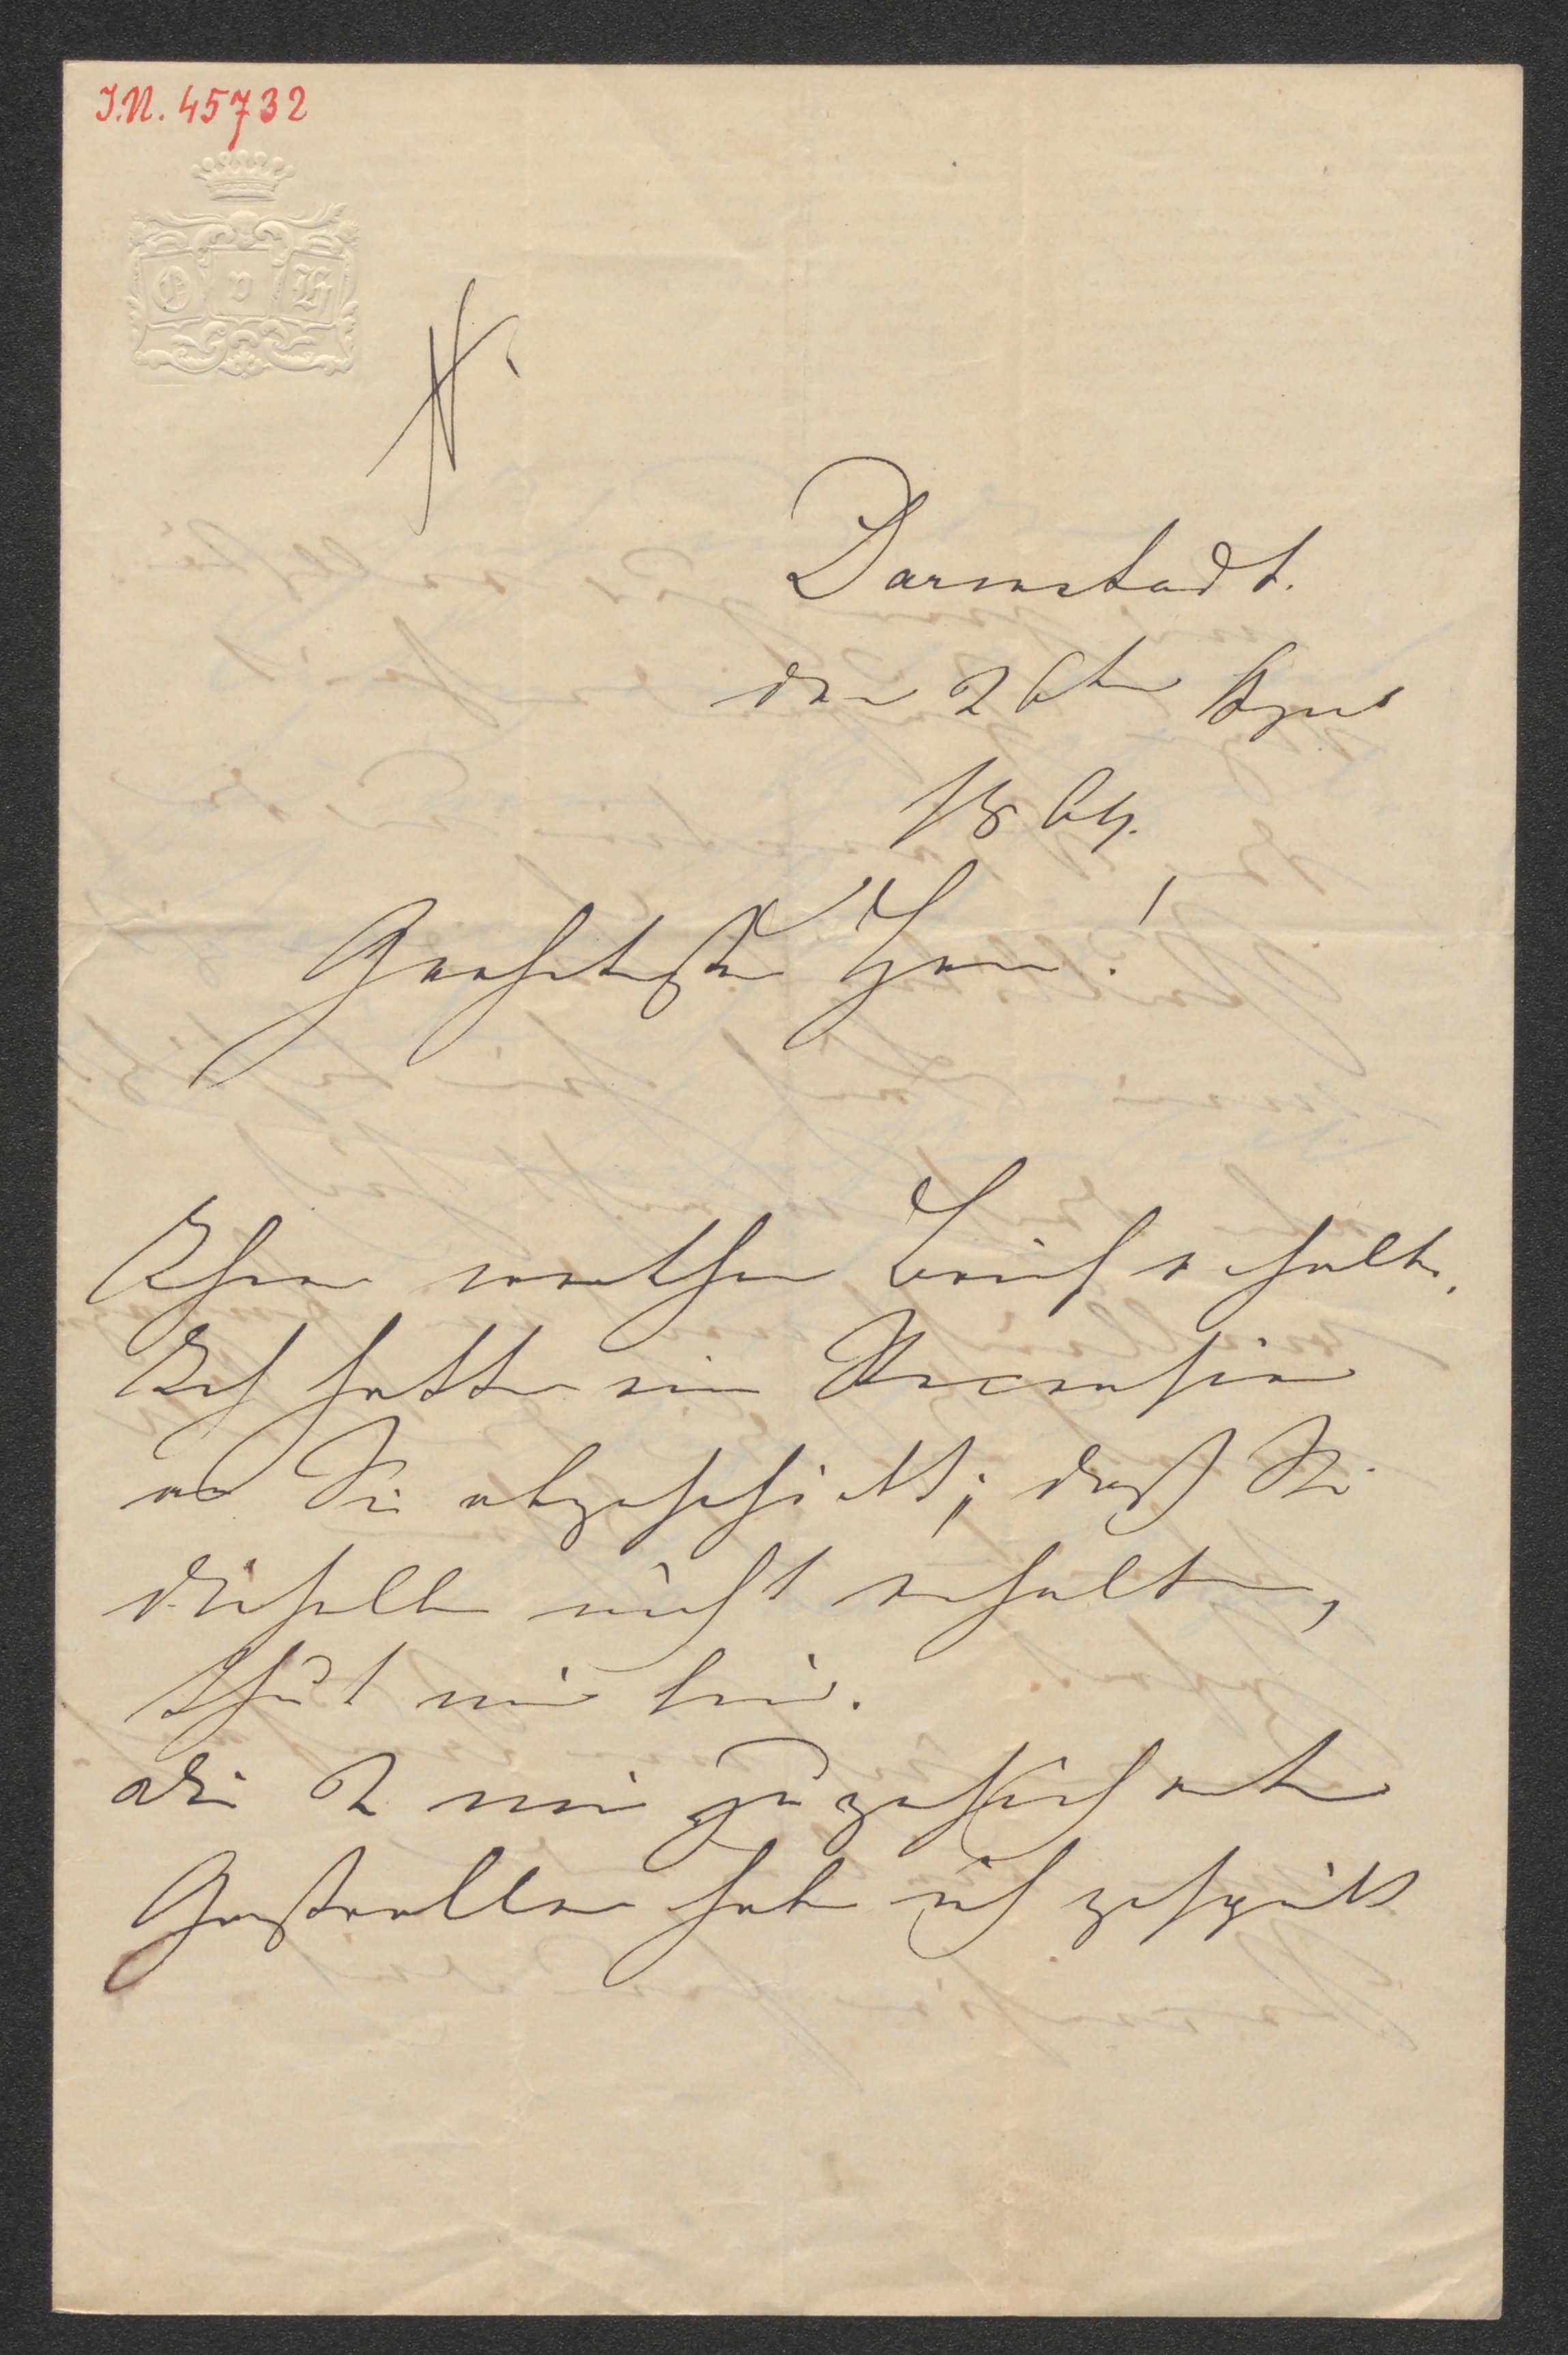 I.N. 45732
O v H
Darmstadt.
den 26ten April
1864.
Geehrtester Herr!
Ihren werthen Brief erhalten.
Ich hatte eine Recension
an Sie abgeschickt; daß Sie
dieselbe nicht erhalten,
thut mir leid.
Die 2 mir zugesicherten
Gastrollen habe ich gespielt